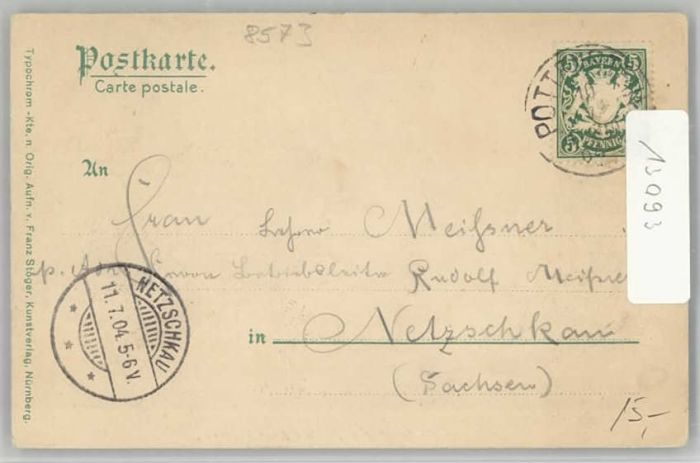 8573
Postkarte.
Carte postale.
Typochrom-Kte. n. Orig.-Aufn. v. Franz Stöger, Kunstverlag, Nürnberg.
POTT
5 BAYERN 5
5 PFENNIG
13093
An
Frau Lehrer Meißner
p. Adr. Herrn Betriebsleiter Rudolf Meißner
in Netzschkau
(Sachsen)
NETZSCHKAU
11.7.04.5-6V.
15,-